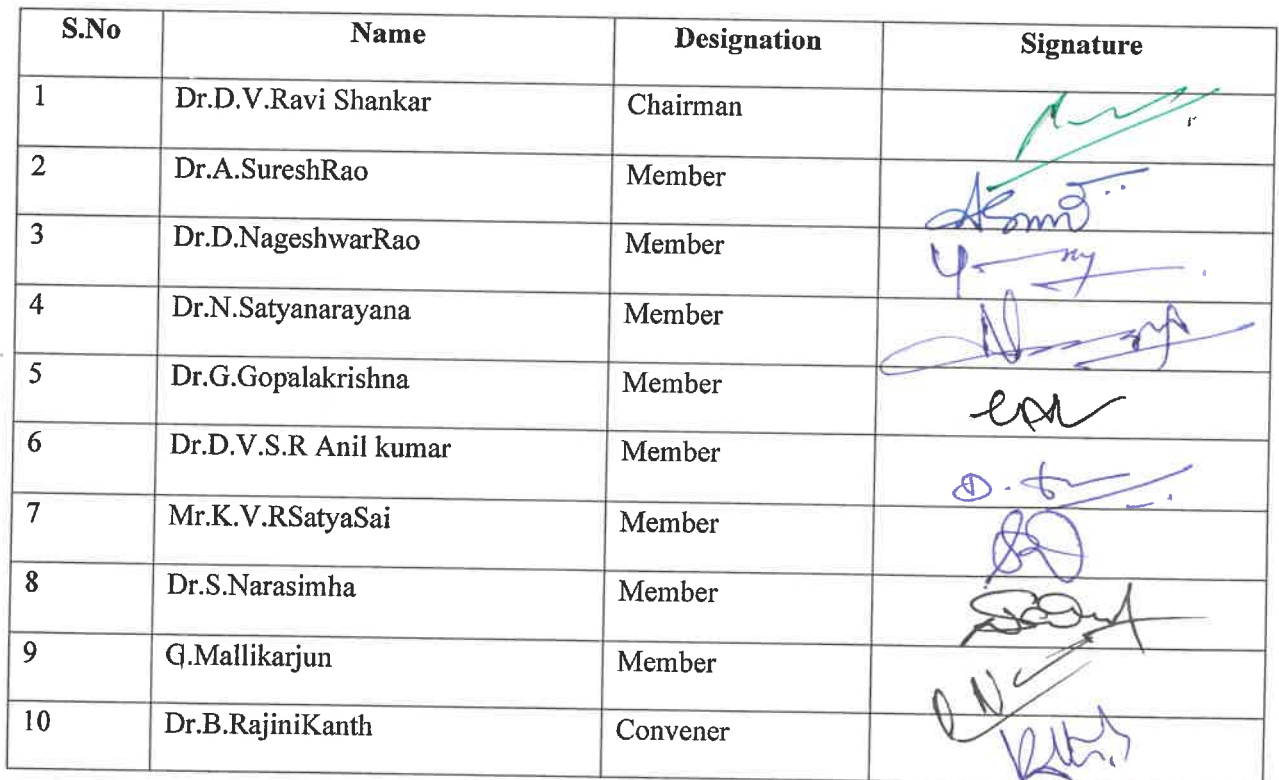 S.No Name Designation Signature
1 Dr.D.V.Ravi Shankar Chairman
2 Dr.A.SureshRao Member
3 Dr.D.NageshwarRao Member
4 Dr.N.Satyanarayana Member
5 Dr.G.Gopalakrishna Member
6 Dr.D.V.S.R Anil kumar Member
7 Mr.K.V.RSatyaSai Member
8 Dr.S.Narasimha Member
9 G.Mallikarjun Member
10 Dr.B.RajiniKanth Convener